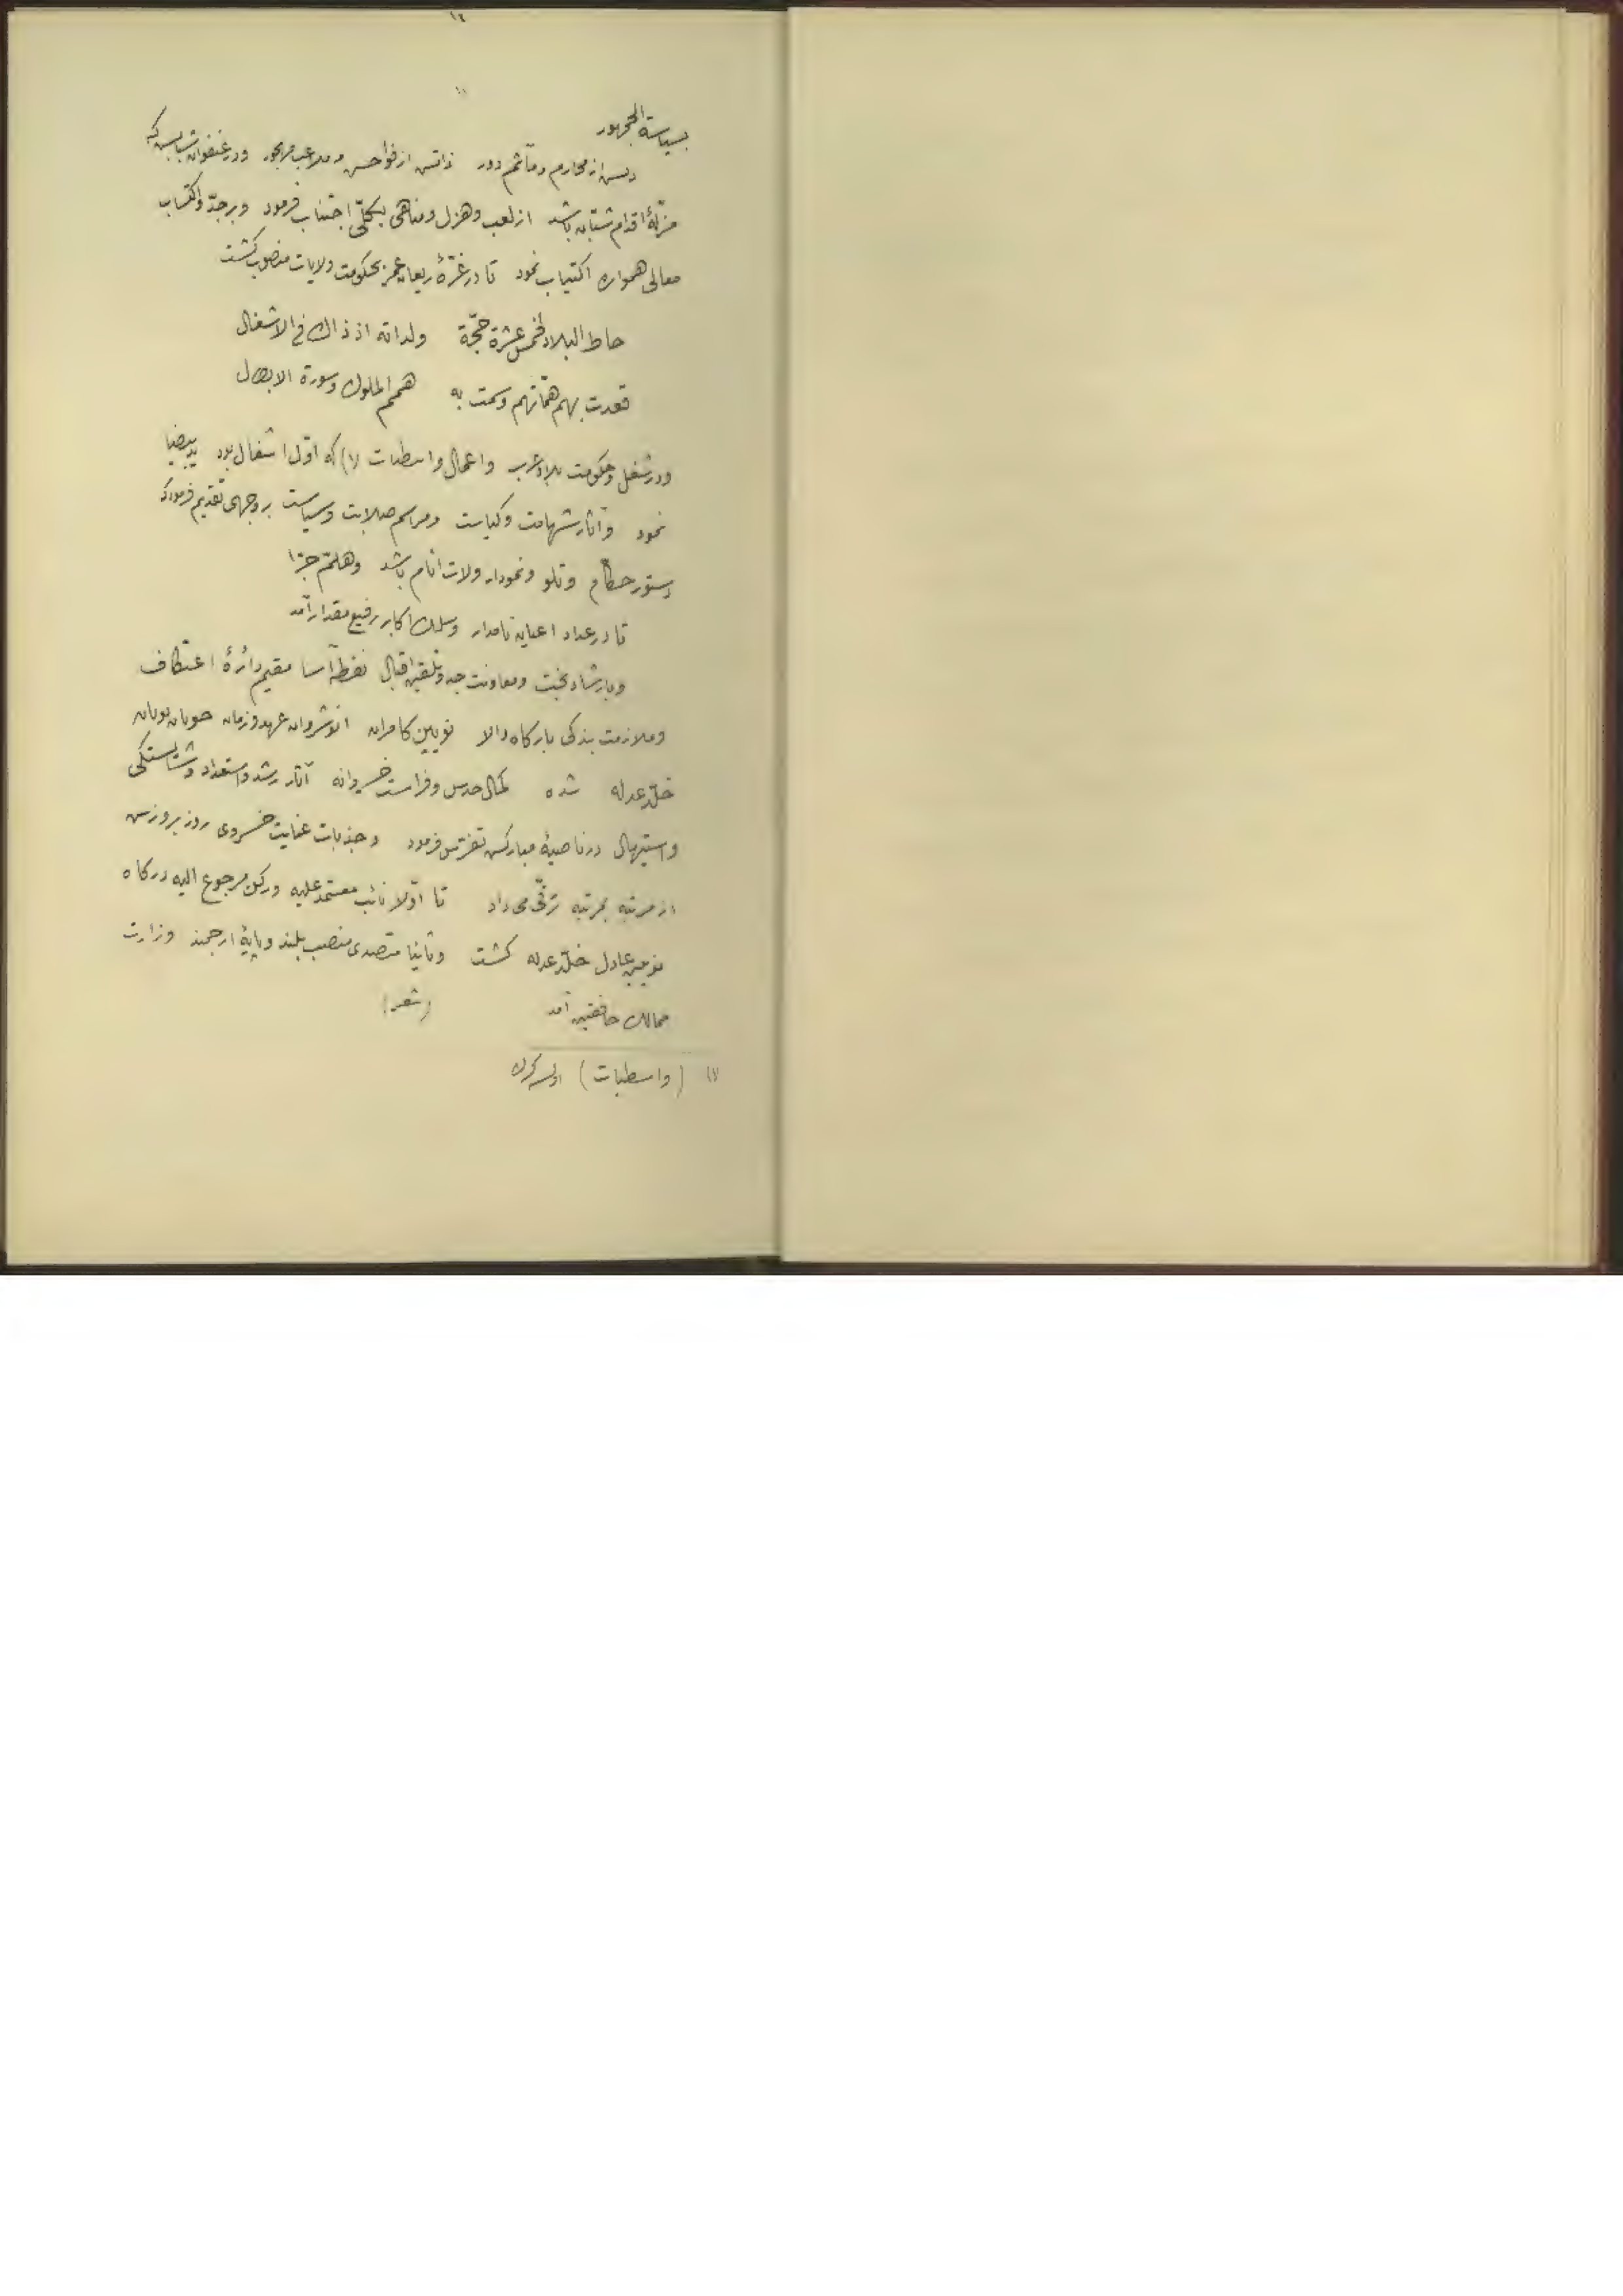 ١٤
١١
بسیاسة الجمهور
دست از محارم و مآثم دور ذاتش از فواحش و ملاعب مهجور و در عنفوان شباب که
مزلّهٔ اقدام شتّابه باشد از لعب و هزل و مناهی بکلّی اجتناب فرمود و بر جدّ و اکتساب
معالی همواره اکتیاب نمود تا در غرّهٔ ریعان عمر بحکومت ولایات منصوب کشت
حاط البلاد لخمس عشرة حجّة ولداته اذ ذاك فی الاشغال
قعدت بهم همّاتهم وسمت به همم الملوك وسورة الابطال
و در شغل و حکومت بلاد عرب و اعمال واسطیات (١) که اوّل اشغال بود ید بیضا
نمود و آثار شهامت و کیاست و مراسم صلابت و سیاست بر وجهی تقدیم فرمود که
دستور حکّام و تلو و نمودار ولات انام باشد وهلمّ جرّا
تا در عداد اعیان نامدار و سلك اکابر رفیع مقدار آمد
و بارشاد بخت و معاونت جد و تلقین اقبال نقطه آسا مقیم دائرهٔ اعتکاف
و ملازمت بندکی بارکاه والا نویین کامران انوشروان عهد و زمان جوبان نویان
خلّد عدله شده بکمال حدس و فراست خسروانه آثار رشد و استعداد و شایستکی
و استیهال در ناصیهٔ مبارکش تفرّس فرمود و جذبات عنایت خسروی روز بروزش
از مرتبه بمرتبه ترقّی می داد تا اوّلا نائب معتمد علیه و رکن مرجوع الیه درکاه
نویین عادل خلّد عدله کشت و ثانیا متصدی منصب بلند و پایهٔ ارجمند وزارت
ممالك خافقین آمد (شعر)
(١) (واسطیات)